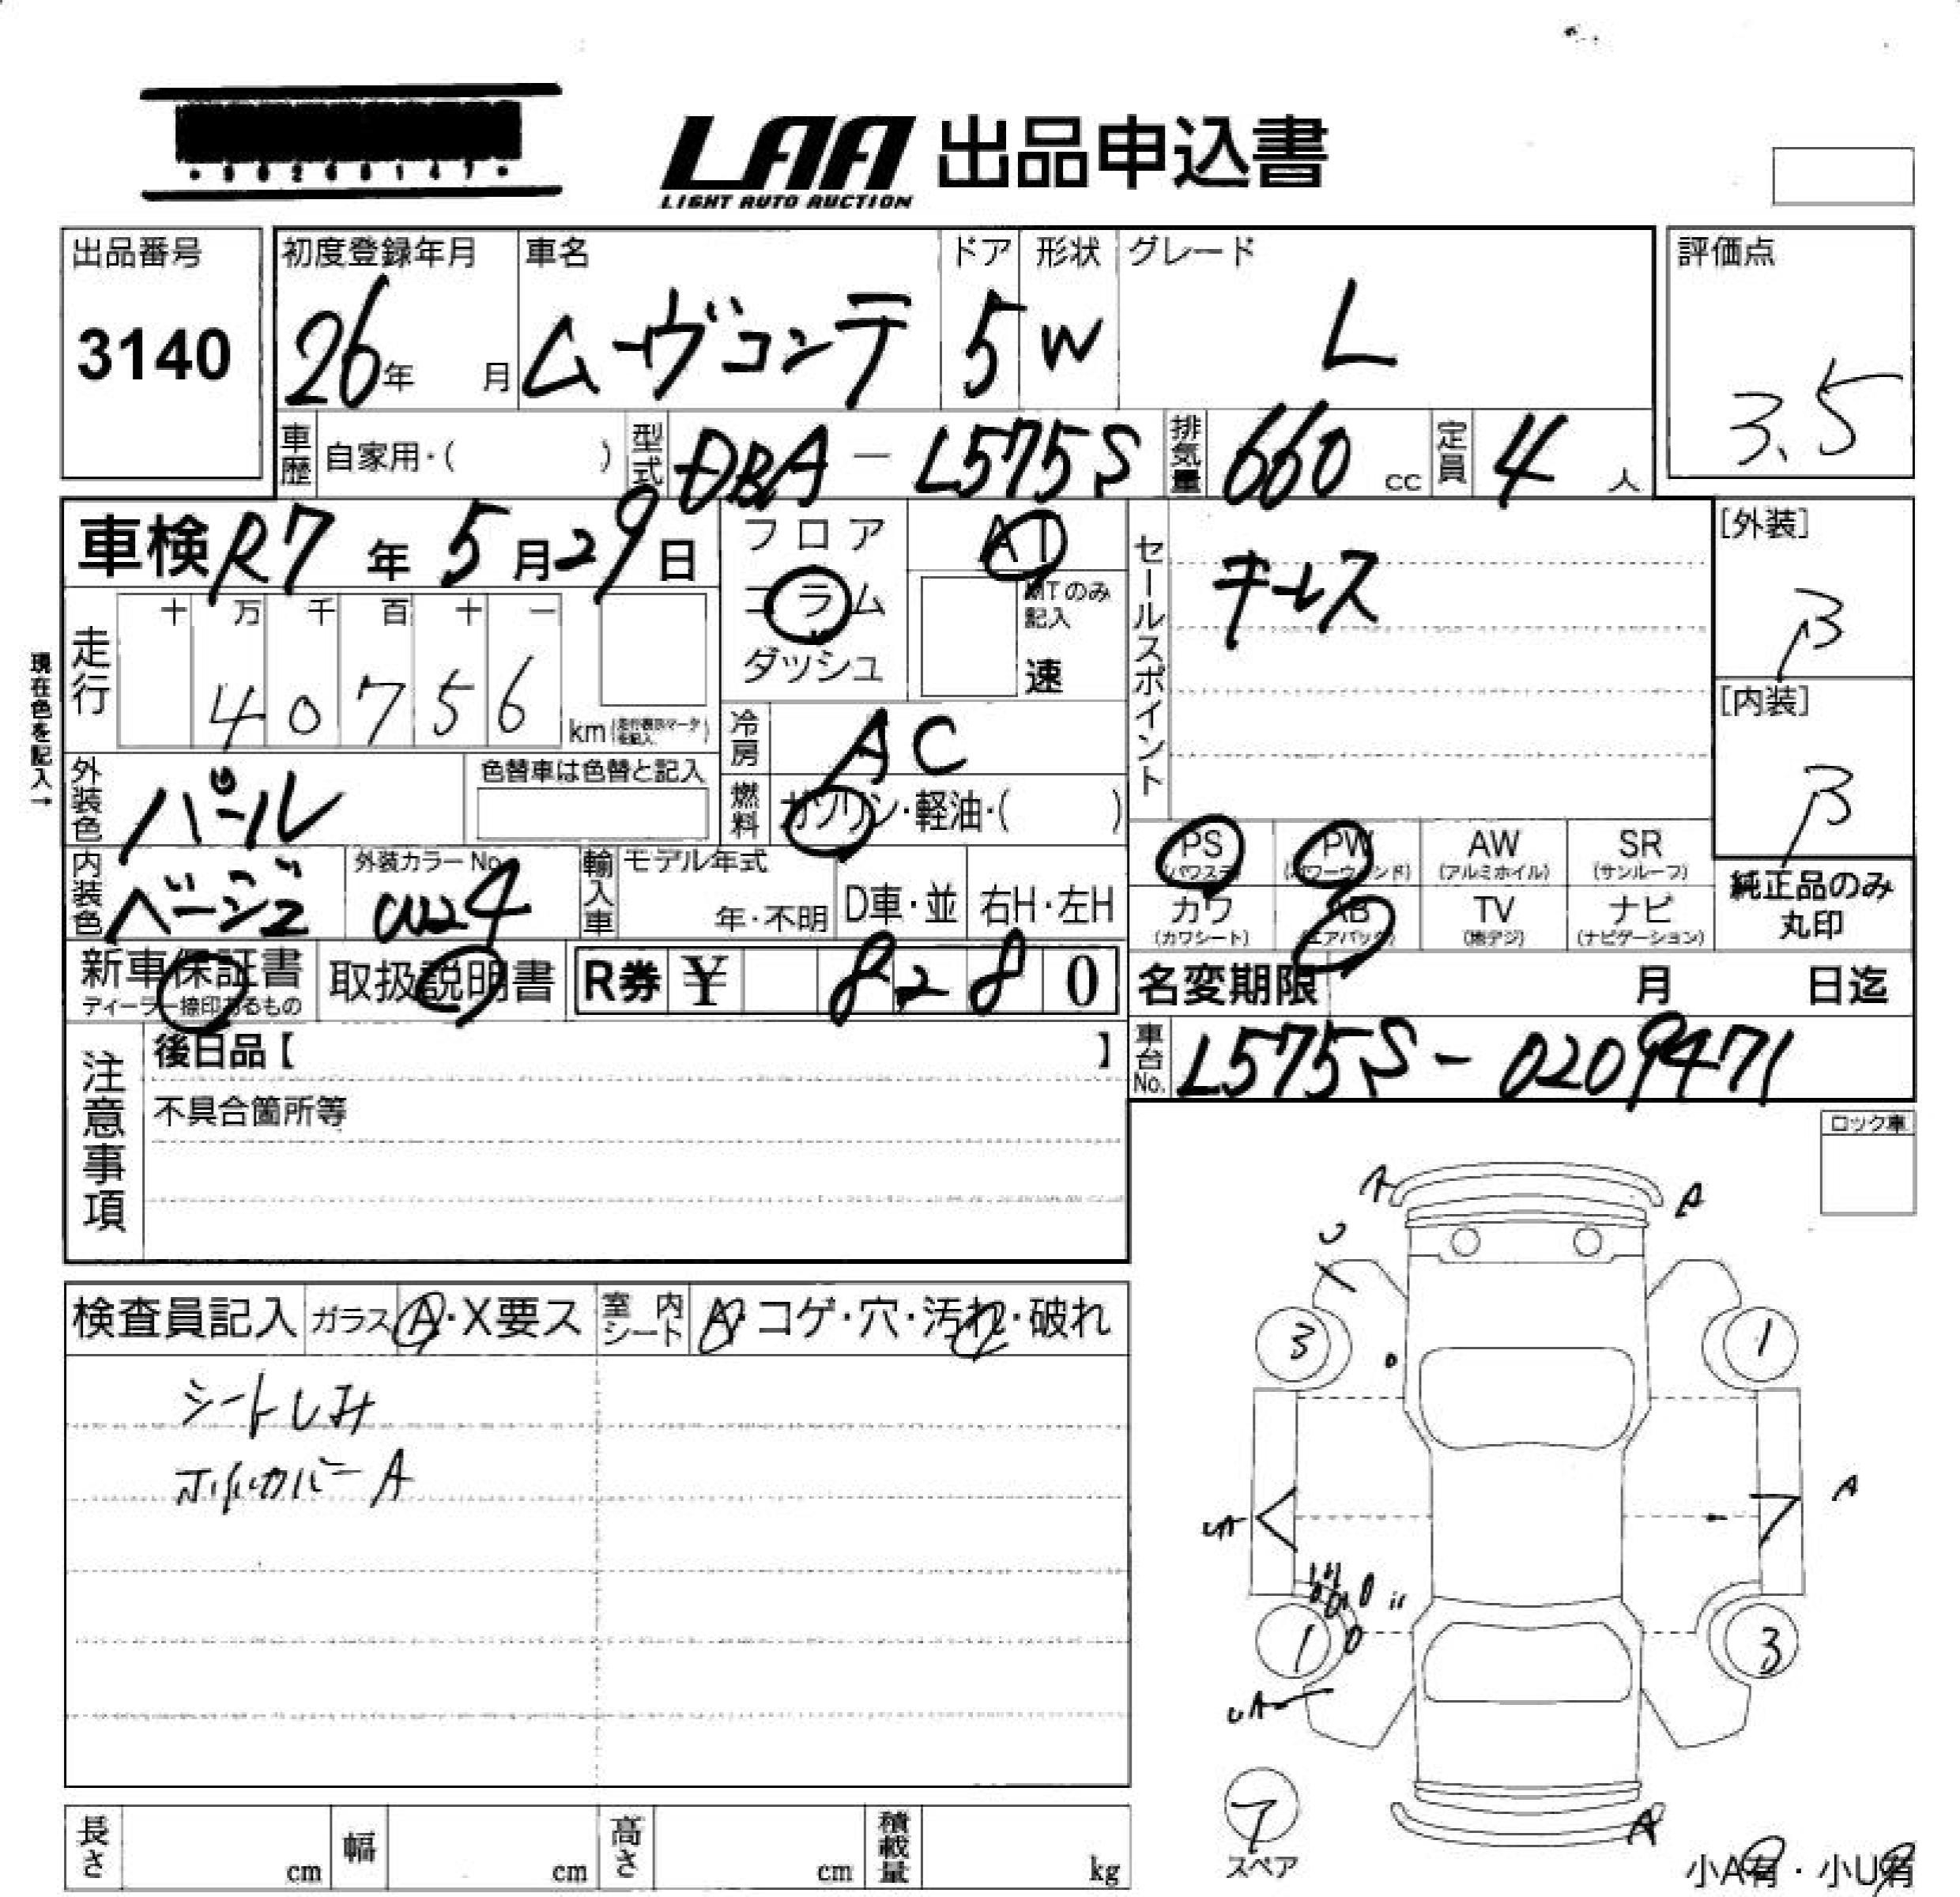 LAA 出品申込書
LIGHT AUTO AUCTION
出品番号
3140
初度登録年月
26年 月
車名
ムーヴコンテ
ドア
5
形状
W
グレード
L
評価点
3.5
車歴 自家用・( )
型式 DBA - L575S
排気量 660 cc
定員 4 人
車検 R7年 5月29日
フロア
コラム
ダッシュ
AT
MTのみ記入
速
セールスポイント
キーレス
[外装]
B
[内装]
B
現在色を記入→
走行
十 万 千 百 十 一
4 0 7 5 6 km
冷房 AC
燃料 ガソリン・軽油・( )
外装色 パール
色替車は色替と記入
内装色 ベージュ
外装カラーNo.
W24
輸入車 モデル年式
年・不明
D車・並
右H・左H
PS (パワステ)
PW (パワーウィンド)
AW (アルミホイル)
SR (サンルーフ)
カワ (カワシート)
AB (エアバック)
TV (地デジ)
ナビ (ナビゲーション)
純正品のみ
丸印
新車保証書
ディーラー捺印あるもの
取扱説明書
R券 ¥ 8 2 8 0
名変期限 月 日迄
車台No. L575S - 0209471
注意事項
後日品【 】
不具合箇所等
ロック車
検査員記入 ガラス A・X要ス
室内シート A・コゲ・穴・汚れ・破れ
シートしみ
ホイルカバーA
A
A
U
3
1
UA
A
1
3
UA
T
スペア
A
小A有・小U有
長さ cm
幅 cm
高さ cm
積載量 kg